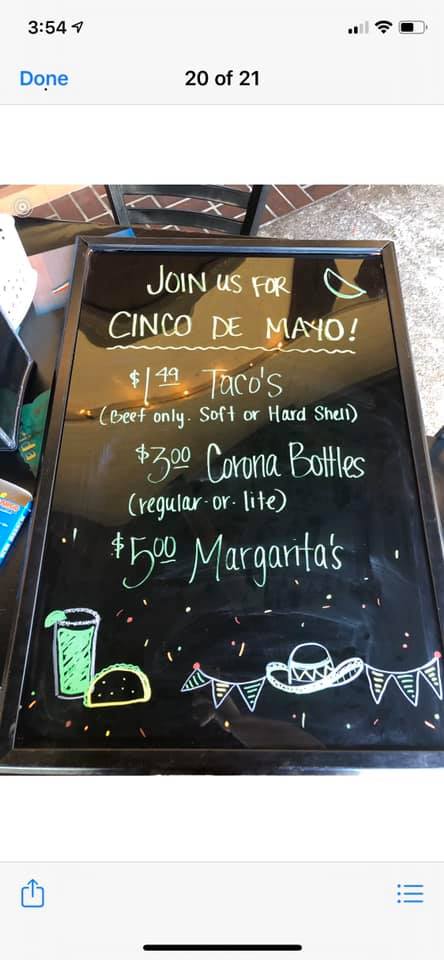 3:54
Done
20 of 21
JOIN US FOR
CINCO DE MAYO!
$1 49 Taco's
(Beef only. Soft or Hard Shell)
$3 00 Corona Bottles
(regular-or-lite)
$5 00 Margarita's